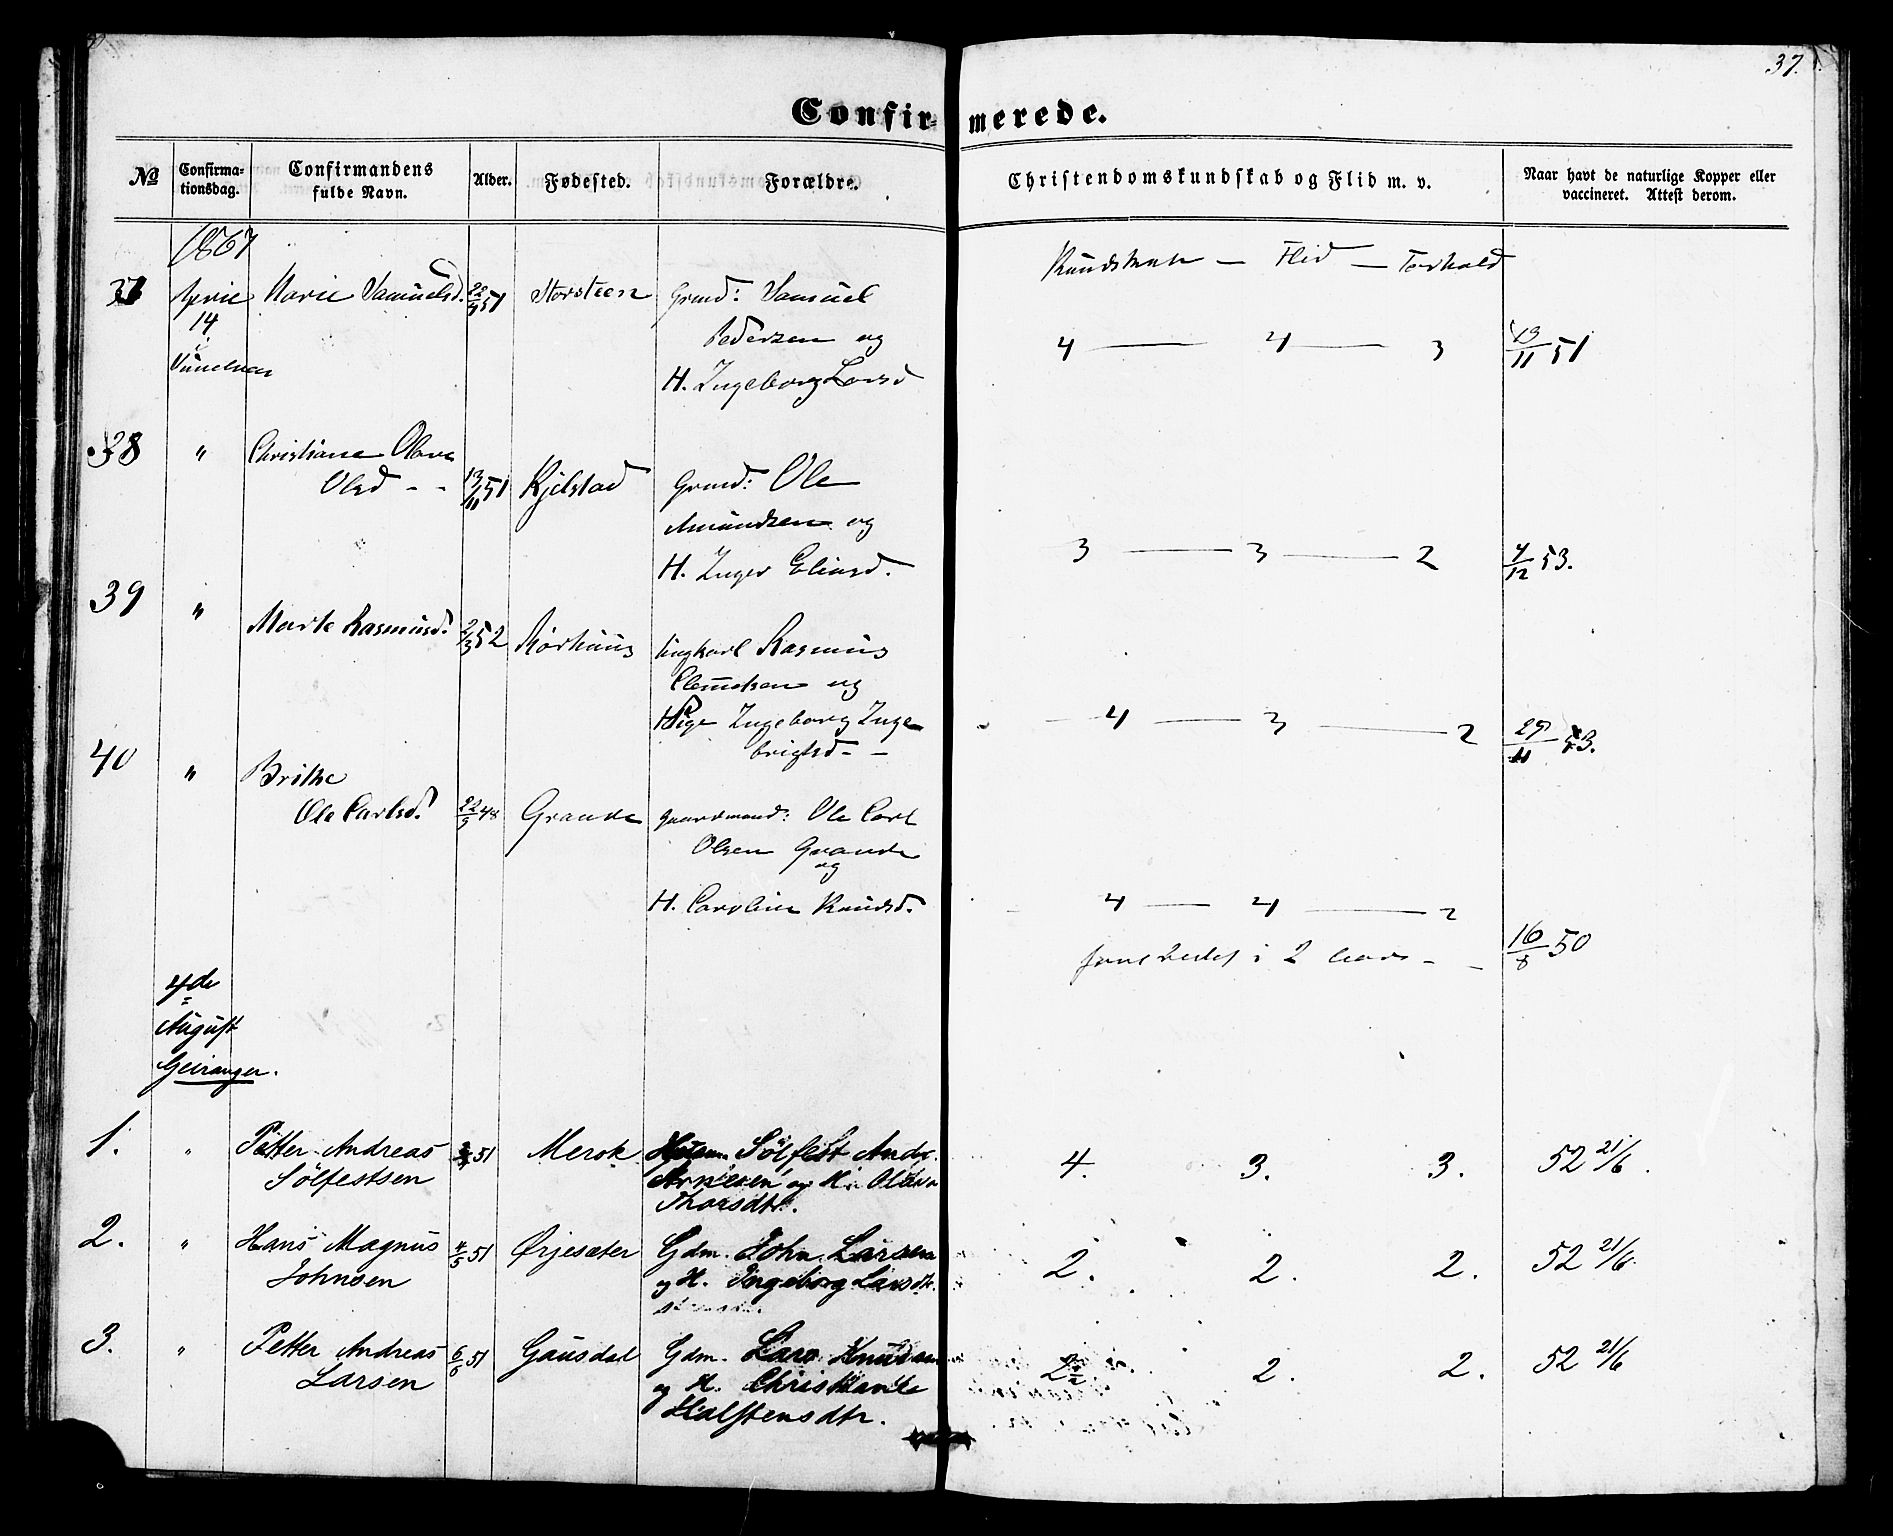 37.
Confirmerede.
No
Confirma-
tionsdag.
Confirmandens
fulde Navn.
Alder.
Fødested.
Forældre.
Christendomskundskab og Flid m. v.
Naar havt de naturlige Kopper eller
vaccineret. Attest derom.
1867
Kundskab — Flid — Forhold
37
April Marie Samuelsd. 22/9 51 Storsteen Grmd: Samuel
14
Pedersen og
i
Sunelven
H. Ingeborg Larsd
4 — 4 — 3
13/11 51
38 " Christiane Olave
Olsd - - 13/11 51 Kjelstad Grmd: Ole
Amundsen og
H. Inger Eliasd.
3 — 3 — 2
4/12 53.
39 "
Marte Rasmusd. 2/3 52 Korhuus Ungkarl Rasmus
Clemetsen og
Pige Ingeborg Inge
brigtsd - -
4 — 3 — 2
29/11 53.
40 " Brithe
Ole Carlsd. 22/9 48 Grande Gaardmand: Ole Carl
Olsen Grande
og
H. Caroline Knudsd.
4 — 4 — 2
i 2 - -
16/8 50
4de
August
Geiranger.
1. " Petter Andreas 51 Merok Sølfest Andr.
Sølfestsen
Arnesen og H. Olava
Thorsdtr.
4. 3. 3. 52 21/6.
2. " Hans Magnus 4/5 51 Ørjesæter Gdm. John Larsen
Johnsen
og H. Ingeborg Larsdtr.
2. 2. 2. 52 21/6.
3. " Petter Andreas 6/6 51 Gausdal Gdm. Lars Knudsen
Larsen
og H. Christiante
Halstensdtr.
2 1/2 2. 2. 52 21/6